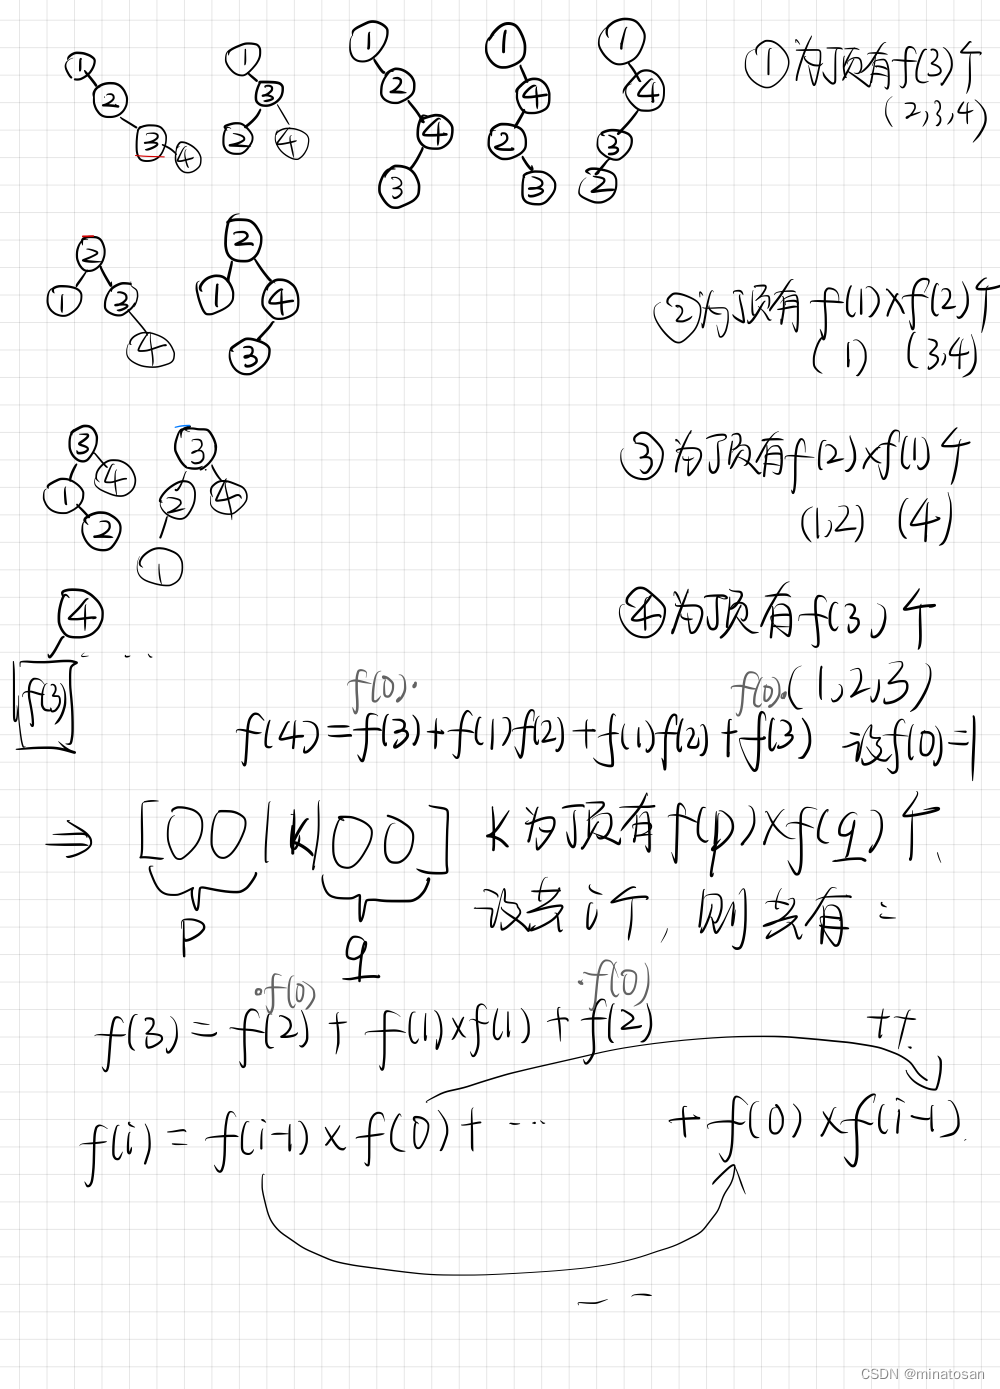 ① ② ③ ④
① ③ ② ④
① ② ④ ③
① ④ ② ③
① ④ ③ ②
①为顶有f(3)个
(2,3,4)
② ① ③ ④
② ① ④ ③
②为顶有 f(1)×f(2)个
(1) (3,4)
③ ④ ① ②
③ ② ④ ①
③为顶有f(2)×f(1)个
(1,2) (4)
④
f(3)
④为顶有f(3)个
f(0)· f(0)·(1,2,3)
f(4)=f(3)+f(1)f(2)+f(1)f(2)+f(3) 设f(0)=1
⇒ [○○|K|○○] K为顶有f(p)×f(q)个.
p q
设共i个,则共有:
·f(0) ·f(0)
f(3) = f(2) + f(1)×f(1) + f(2)
++.
f(i) = f(i-1) × f(0)+ ... + f(0) × f(i-1).
CSDN @minatosan